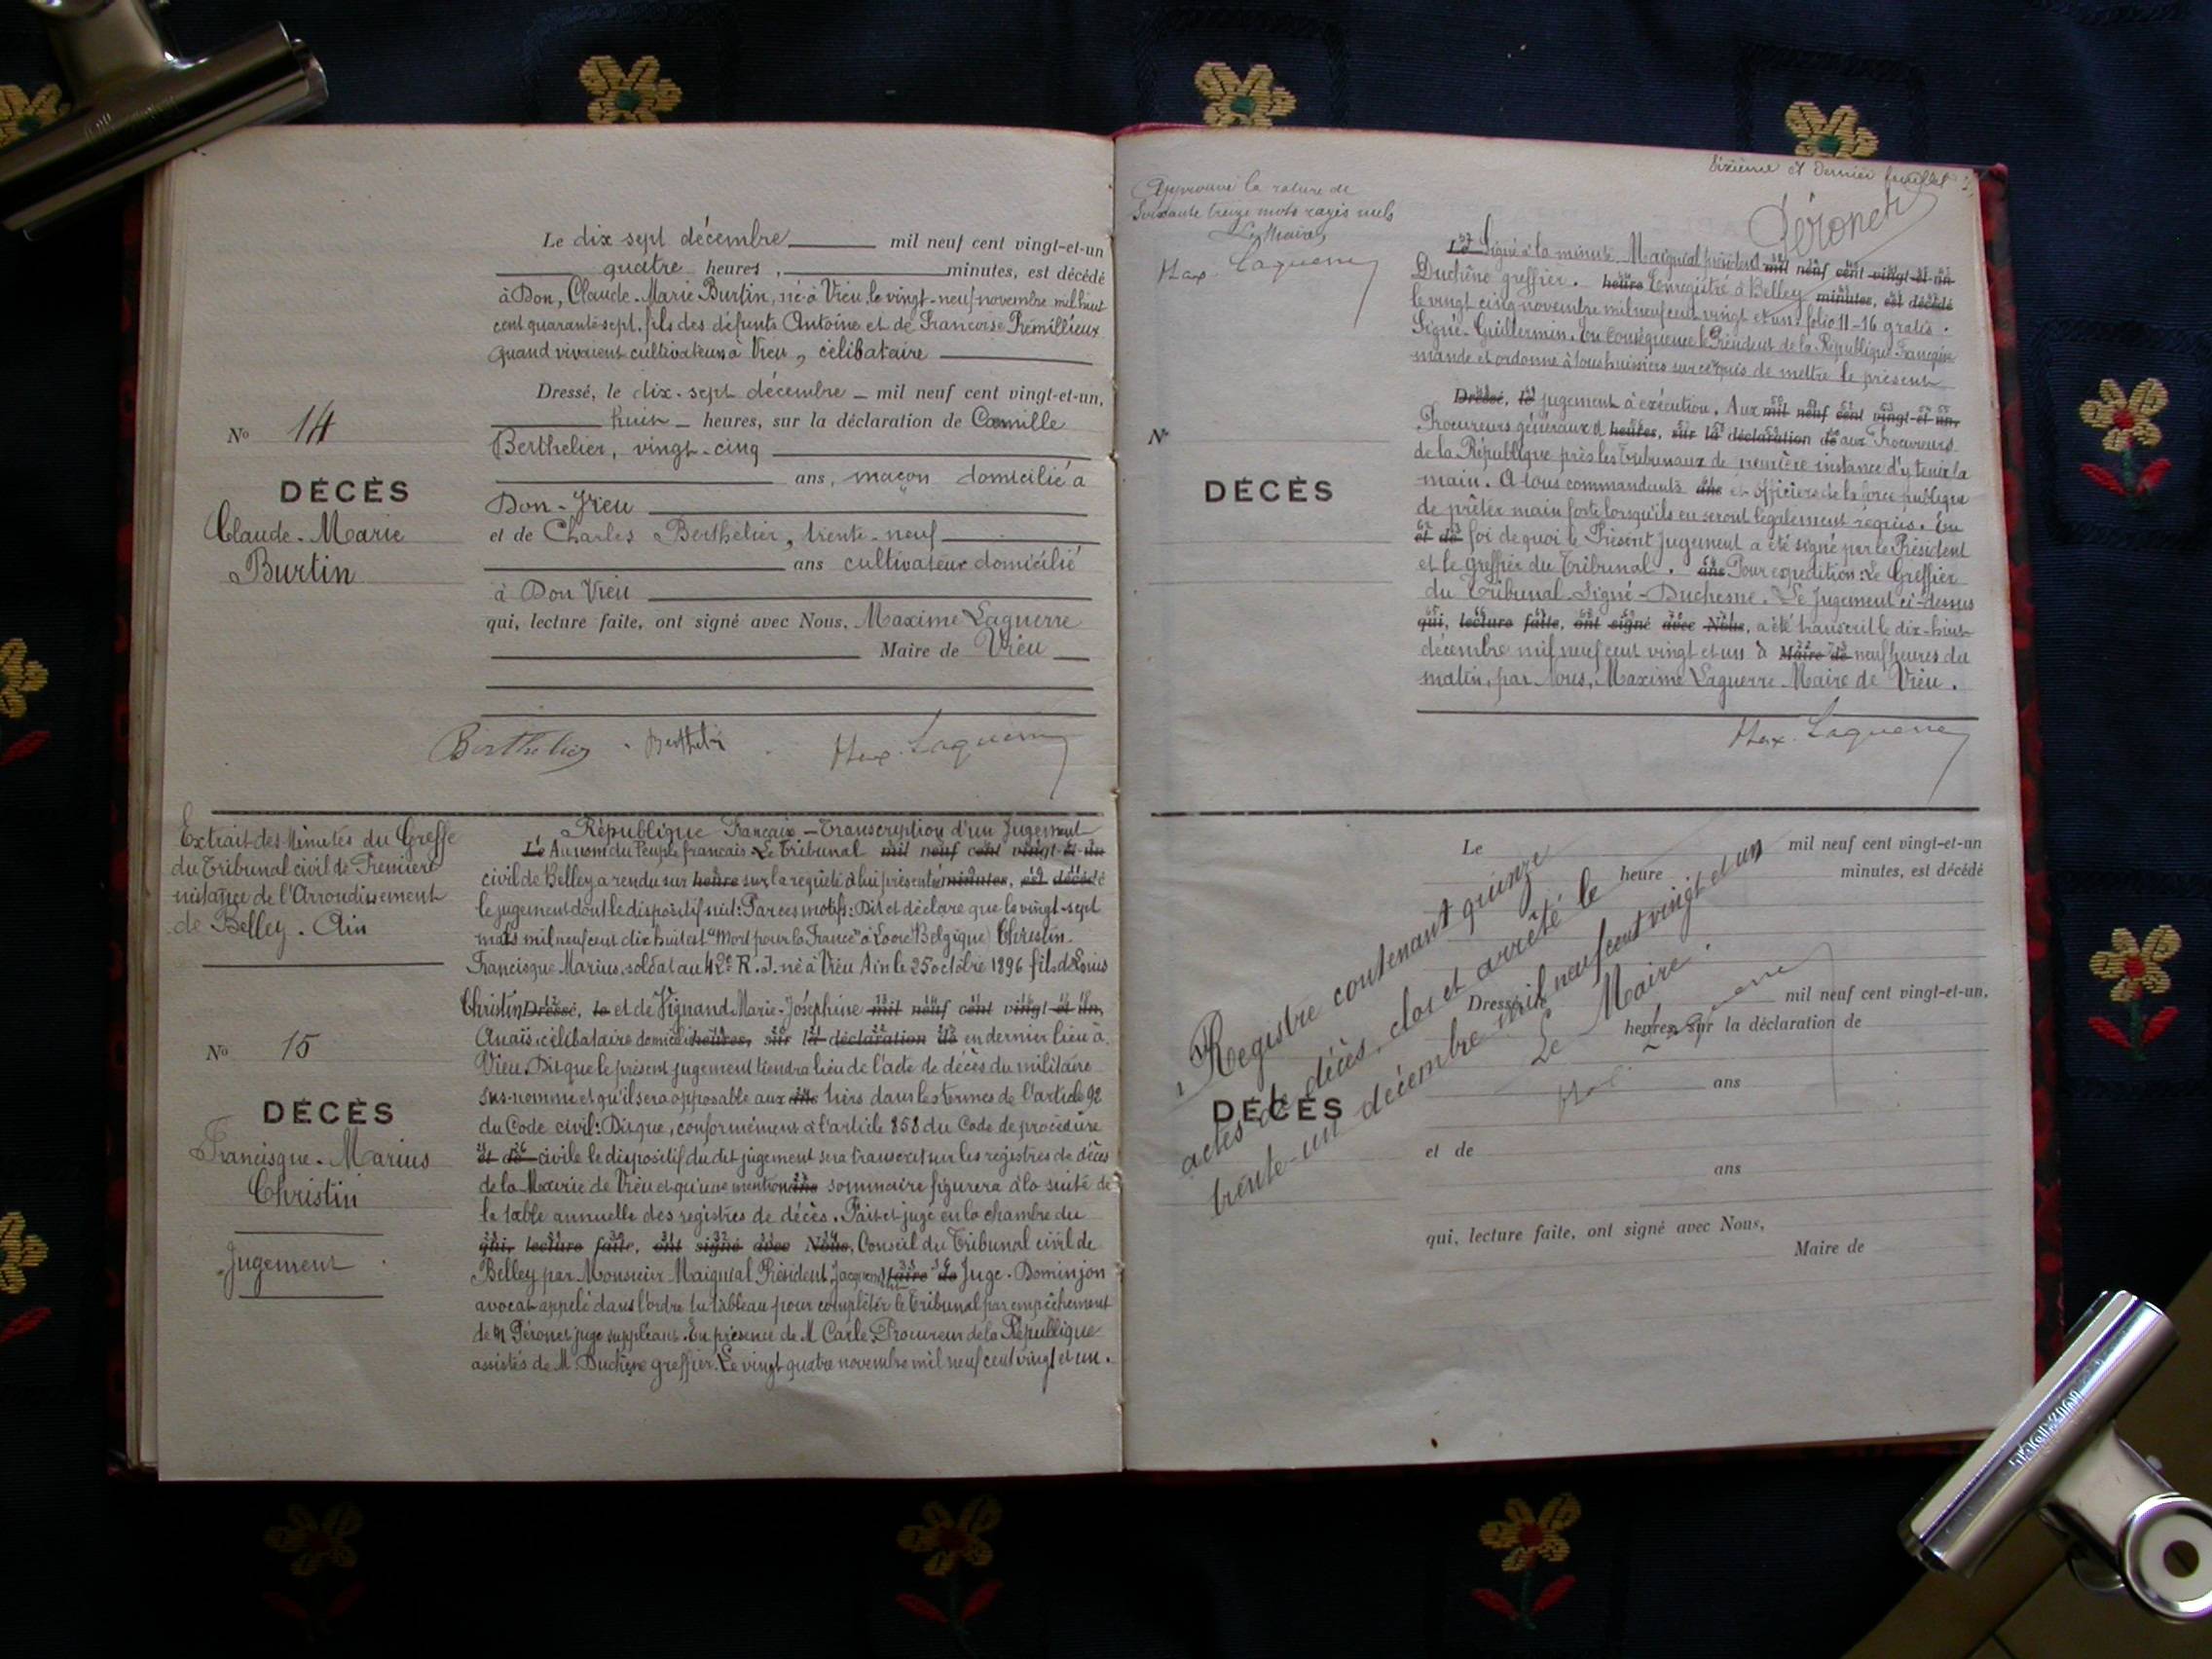 Le dix sept décembre mil neuf cent vingt-et-un
quatre heures, minutes, est décédé
à Don, Claude-Marie Burtin, né à Vieu, le vingt-neuf novembre mil huit
cent quarante sept, fils des défunts Antoine et de Francoise Prémillieux
quand vivaient cultivateurs à Vieu, célibataire
Dressé, le dix-sept décembre mil neuf cent vingt-et-un,
huit heures, sur la déclaration de Camille
Berthelier, vingt-cinq
ans, maçon domicilié à
Don-Vieu
et de Charles Berthelier, trente-neuf
ans cultivateur domicilié
à Don Vieu
qui, lecture faite, ont signé avec Nous, Maxime Laguerre
Maire de Vieu
No 14
DÉCÈS
Claude-Marie
Burtin
Berthelier Max. Laguerre
Extrait des Minutes du Greffe
du Tribunal civil de Premiere
instance de l'Arrondissement
de Belley. Ain
No 15
DÉCÈS
Francisque-Marius
Christin
Jugement
République Francaise - Transcription d'un Jugement
Le Au nom du Peuple français. Le Tribunal mil neuf cent vingt-et-un
civil de Belley a rendu sur heure sur la requête à lui présentée minutes, est décédé
le jugement dont le dispositif suit: Par ces motifs: Dit et déclare que le vingt-sept
mars mil neuf cent dix huit est "Mort pour la France" à Locre (Belgique) Christin
Francisque Marius, soldat au 42e R.I. né à Vieu Ain le 25 octobre 1896 fils de Louis
Christin Dressé, le et de Vignand Marie-Joséphine mil neuf cent vingt-et-un,
Anaïs célibataire domicilié heures, sur la déclaration de en dernier lieu à
Vieu. Dit que le présent jugement tiendra lieu de l'acte de décès du militaire
sus-nommé et qu'il sera opposable aux ans tiers dans les termes de l'article 92
du Code civil: Dit que, conformément à l'article 858 du Code de procédure
et de civile le dispositif du dit jugement sera transcrit sur les registres de décès
de la Mairie de Vieu et qu'une mention ans sommaire figurera à la suite de
la table annuelle des registres de décès. Fait et jugé en la chambre du
qui, lecture faite, ont signé avec Nous, Conseil du Tribunal civil de
Belley par Monsieur Maigual Président, Maire de Juge. Dominjon
avocat appelé dans l'ordre du tableau pour compléter le Tribunal par empêchement
de M Péronet juge suppléant. En présence de M Carle, Procureur de la République
assistés de M. Duchêne greffier. Le vingt quatre novembre mil neuf cent vingt et un.
Sixième et Dernier feuillet
Péronet
Approuvé la rature de
soixante treize mots rayés nuls
Le Maire,
Max. Laguerre
N
DÉCÈS
Le Signé à la minute Maigual président mil neuf cent vingt-et-un
Duchêne greffier. heure Enregistré à Belley minutes, est décédé
le vingt cinq novembre mil neuf cent vingt et un folio 11-16 gratis.
Signé-Guillermin. En conséquence le Président de la République Française
mande et ordonne à tous huissiers sur ce requis de mettre le présent
Dressé, le jugement à exécution. Aux mil neuf cent vingt-et-un,
Procureurs généraux et heures, sur la déclaration de aux Procureurs
de la République près les Tribunaux de première instance d'y tenir la
main. A tous commandants ans et officiers de la force publique
de prêter main forte lorsqu'ils en seront légalement requis. En
et de foi de quoi le Présent Jugement a été signé par le Président
et le Greffier du Tribunal. ans Pour expedition: Le Greffier
du Tribunal Signé-Duchesne. Le Jugement ci-dessus
qui, lecture faite, ont signé avec Nous, a été transcrit le dix-huit
décembre mil neuf cent vingt et un à Maire de neuf heures du
matin, par Nous, Maxime Laguerre Maire de Vieu.
Max. Laguerre
Le mil neuf cent vingt-et-un
heure minutes, est décédé
Dressé, le mil neuf cent vingt-et-un,
heures, sur la déclaration de
ans
DÉCÈS
et de
ans
qui, lecture faite, ont signé avec Nous,
Maire de
Registre contenant quinze
actes de décès, clos et arrêté le
trente-un décembre mil neuf cent vingt et un
Le Maire.